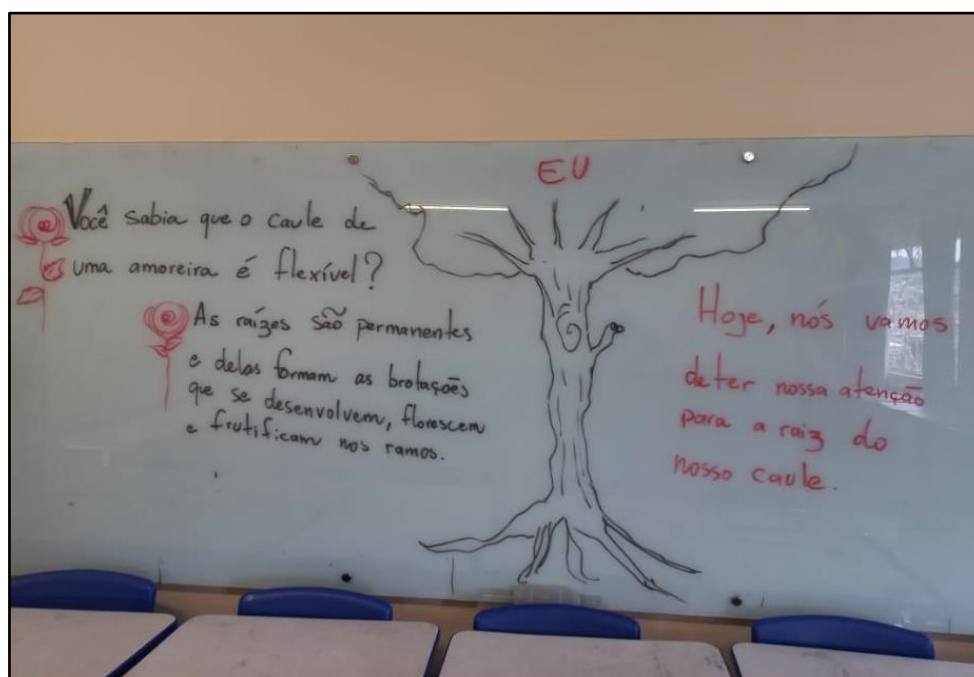 EU
Você sabia que o caule de
uma amoreira é flexível?
As raízes são permanentes
e delas formam as brotações
que se desenvolvem, florescem
e frutificam nos ramos.
Hoje, nós vamos
deter nossa atenção
para a raiz do
nosso caule.